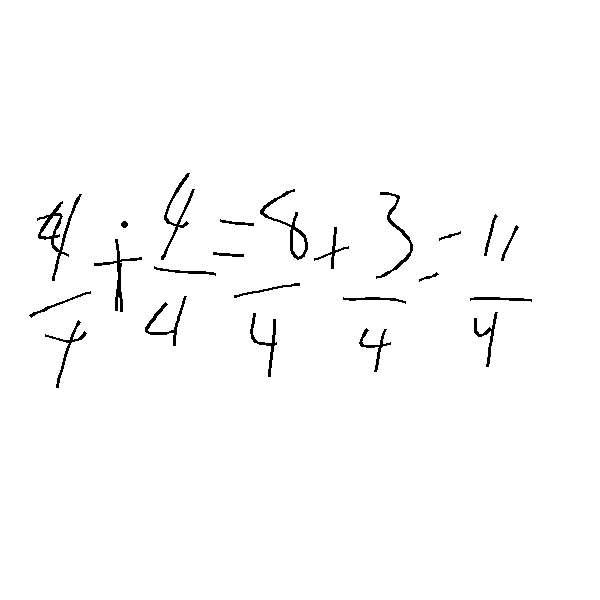 4/4 + 4/4 = 8/4 + 3/4 = 11/4